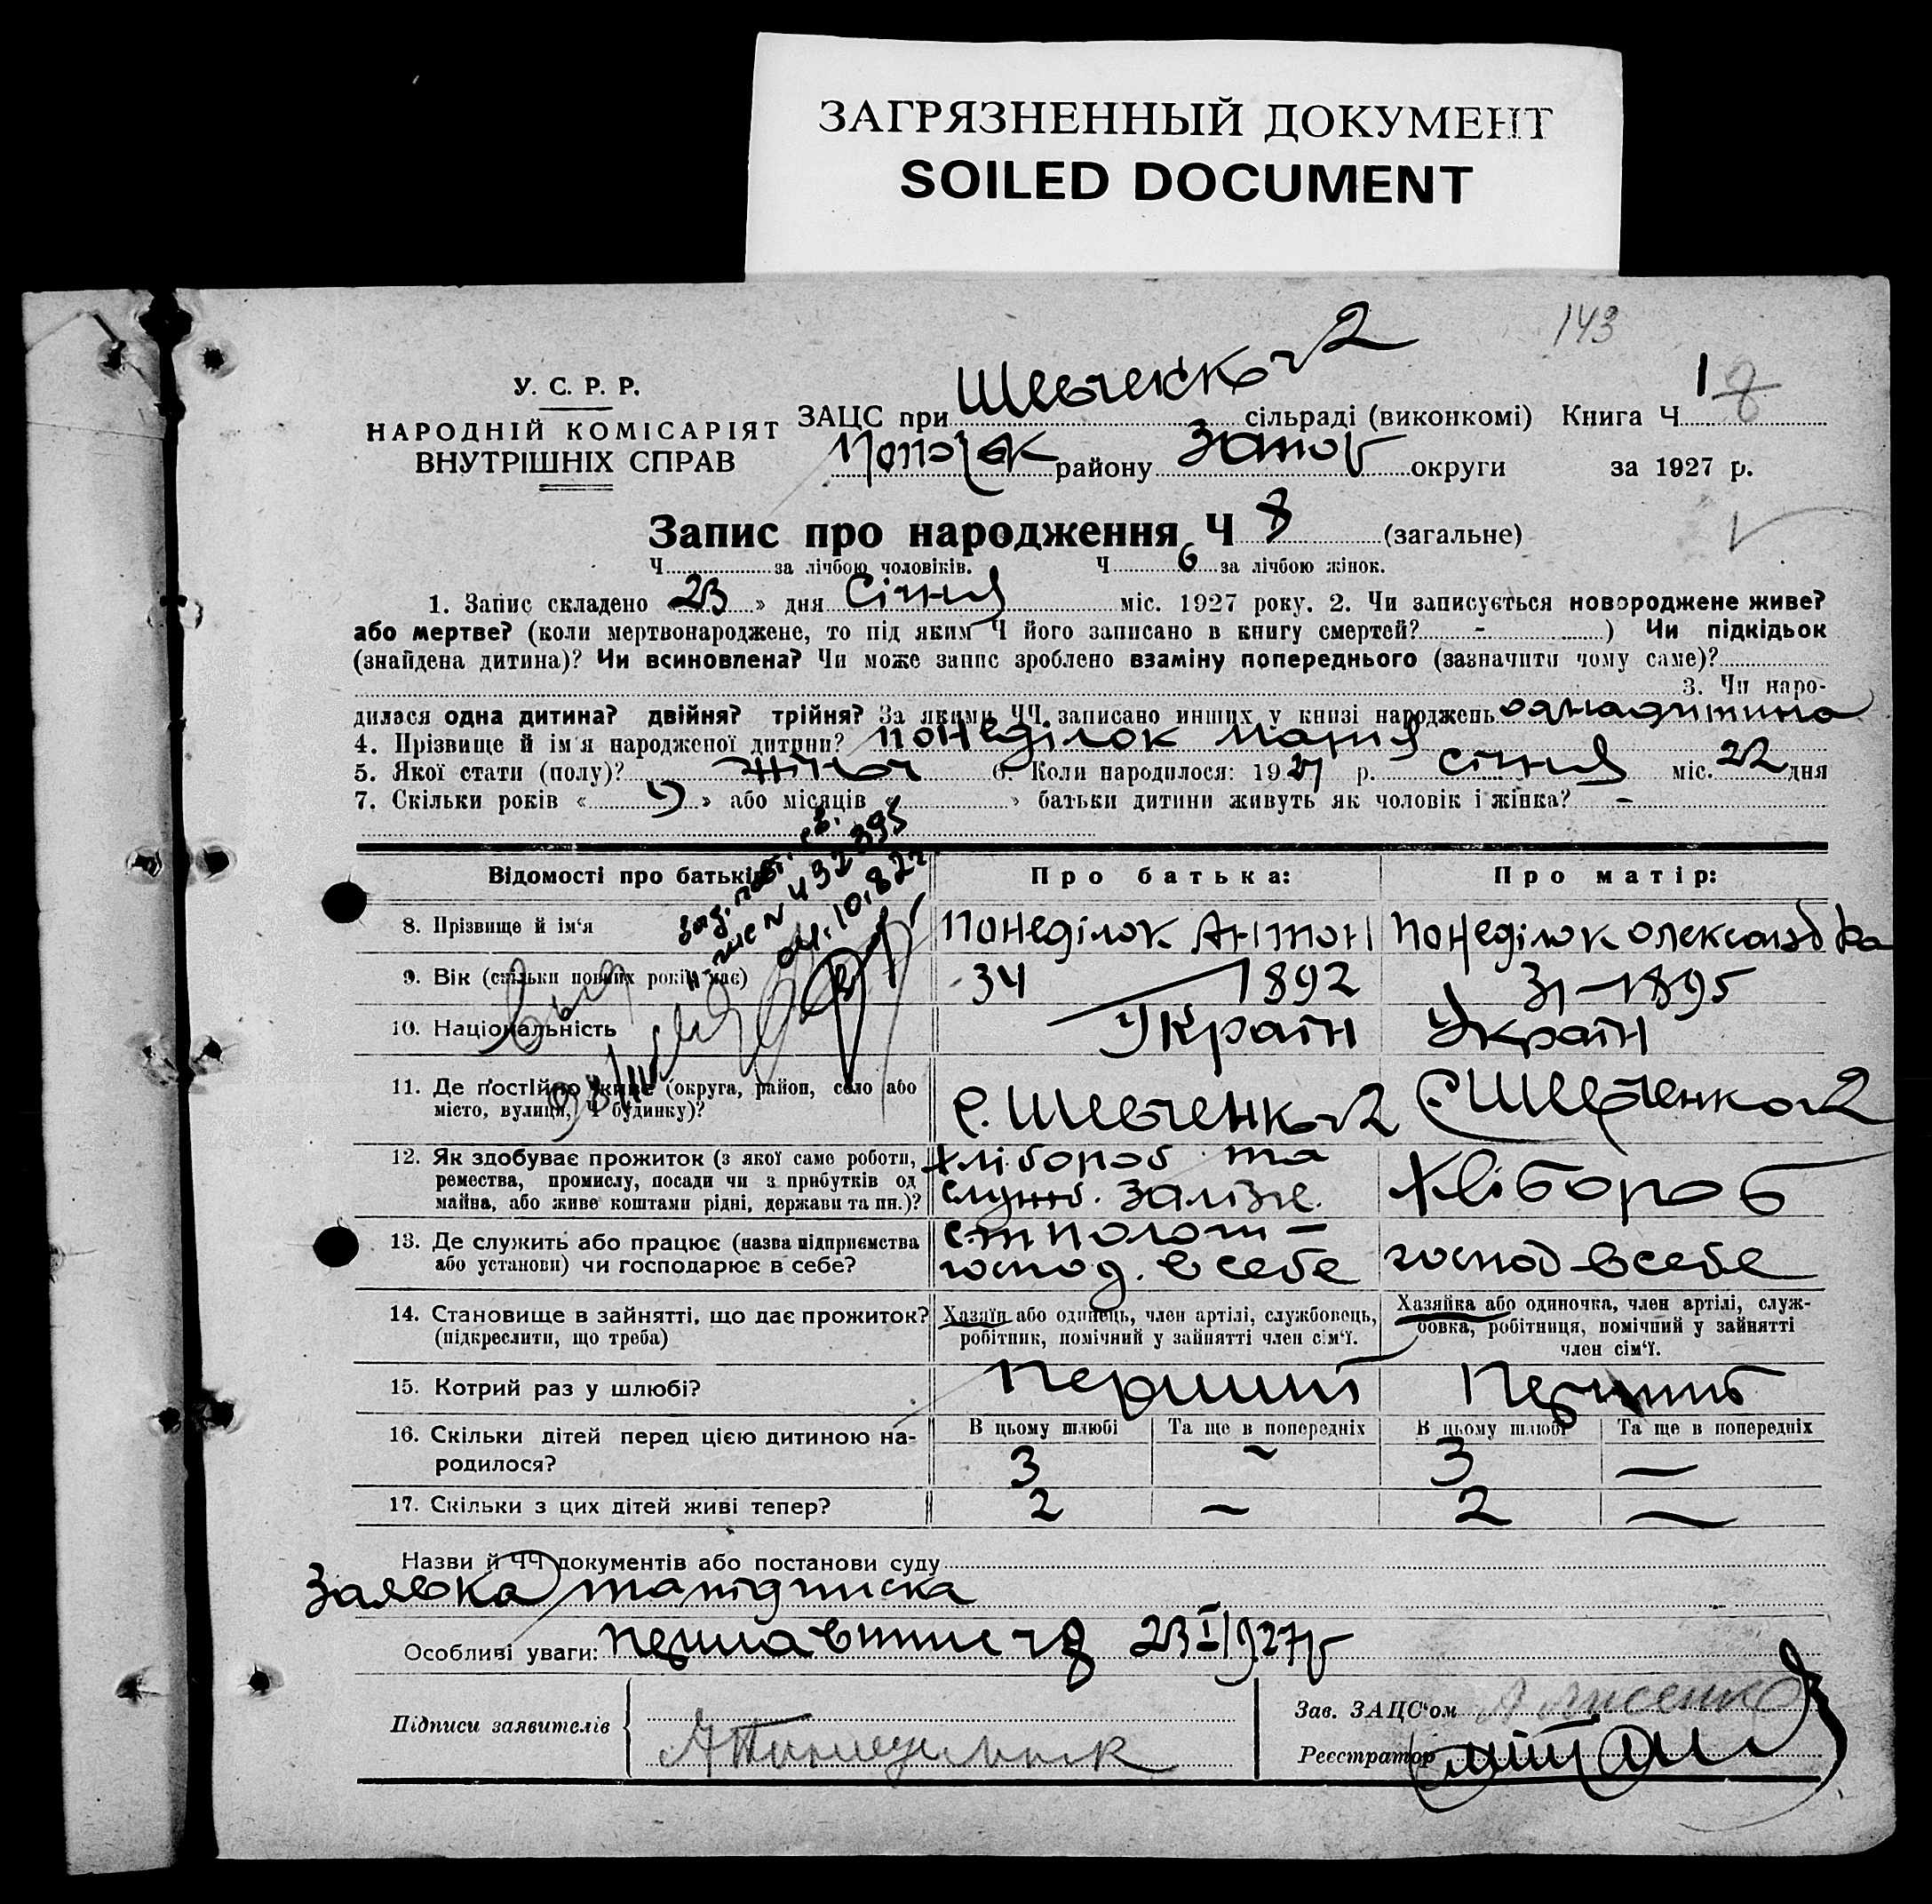 ЗАГРЯЗНЕННЫЙ ДОКУМЕНТ
SOILED DOCUMENT
143
У. С. Р. Р.
НАРОДНІЙ КОМІСАРІЯТ
ВНУТРІШНІХ СПРАВ
ЗАЦС при Шевченков2 сільраді (виконкомі) Книга Ч 1 8
району Запор округи за 1927 р.
Запис про народження Ч 8 (загальне)
Ч за лічбою чоловіків. Ч 6 за лічбою жінок.
1. Запис складено 23 » дня Січня міс. 1927 року. 2. Чи записується новороджене живе?
або мертве? (коли мертвонароджене, то під яким Ч його записано в книгу смертей? - ) Чи підкідьок
(знайдена дитина)? Чи всиновлена? Чи може запис зроблено взаміну попереднього (зазначити чому саме)?
3. Чи наро-
дилася одна дитина? двійня? трійня? За якими ЧЧ. записано инших у книзі народжень однадитина
4. Прізвище й ім'я народженої дитини? Понеділок Марія
5. Якої статі (полу)? 6. Коли народилося: 1927 р. січня міс. 22 дня
7. Скільки років « 9 » або місяців « » батьки дитини живуть як чоловік і жінка? -
Відомості про батьків Про батька: Про матір:
8. Прізвище й ім'я Понеділок Антон Понеділок Олександра
9. Вік (скільки повних років має) 34 1892 31-1895
10. Національність Україн Україн
11. Де постійно живе (округа, район, село або
місто, вулиця, Ч будинку)? с. Шевченков2 с. Шевченков2
12. Як здобуває прожиток (з якої саме роботи,
ремества, промислу, посади чи з прибутків од
майна, або живе коштами рідні, держави та пн.)?
хлібороб та
служб. залізн. Хлібороб
13. Де служить або працює (назва підприємства
або установи) чи господарює в себе?
ст Пологи -
господ. в себе господ в себе
14. Становище в зайнятті, що дає прожиток?
(підкреслити, що треба)
Хазяїн або одинець, член артілі, службовець,
робітник, помічний у зайнятті член сім'ї.
Хазяйка або одиночка, член артілі, служ-
бовка, робітниця, помічний у зайнятті
член сім'ї.
15. Котрий раз у шлюбі? Перший Перший
В цьому шлюбі Та ще в попередніх В цьому шлюбі Та ще в попередніх
16. Скільки дітей перед цією дитиною на-
родилося? 3 - 3 -
17. Скільки з цих дітей живі тепер? 2 - 2 -
Назви й ЧЧ документів або постанови суду
Заявка та підписка
Особливі уваги: 23 I/1927р
Підписи заявителів А Понедилок
Зав. ЗАЦС'ом А Лисенко
Реєстратор